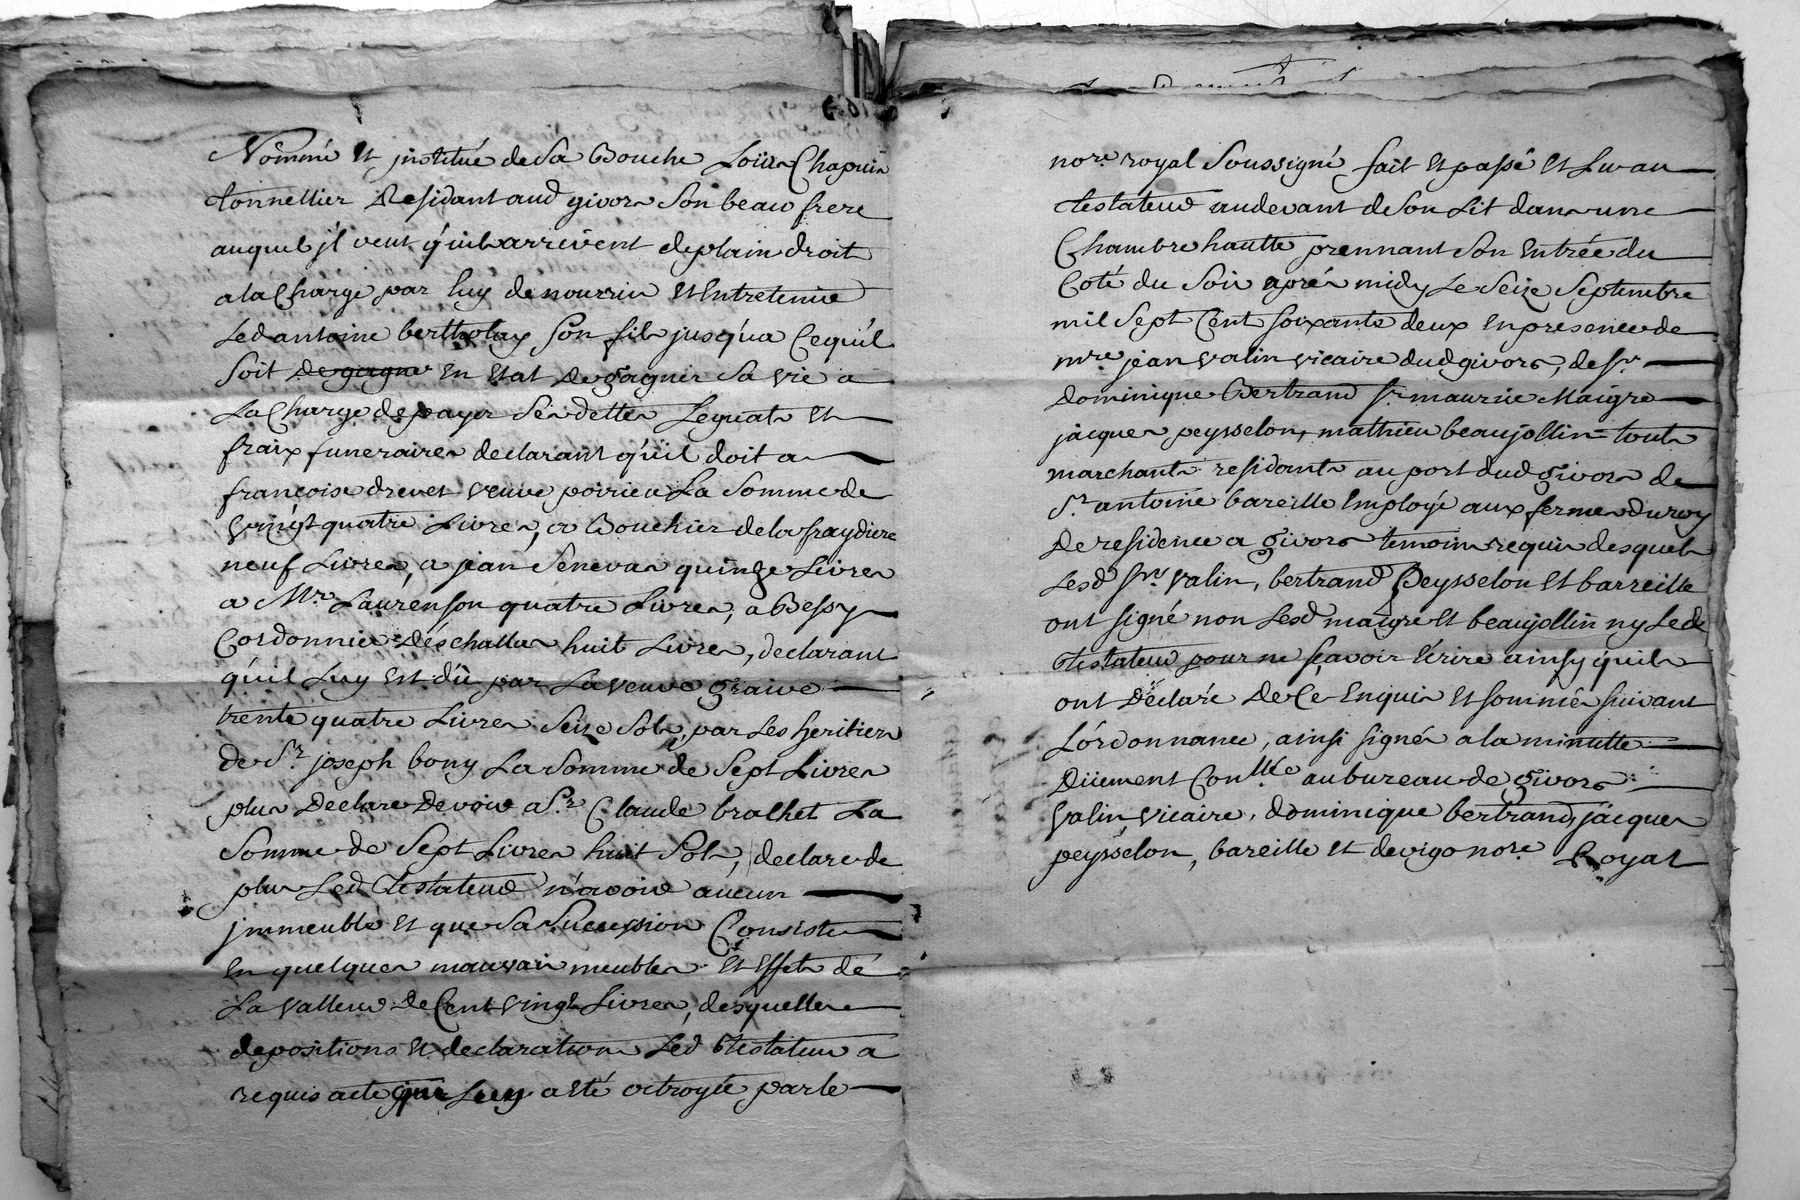 Nommé et jnstitué de Sa Bouche Loüis Chapuis
tonnellier Residant aud givors Son beau frere
auquel j'l veut, qu'ils arrivent de plain droit
a la Charge par luy de nourrir et Entretenir
Led antoine bertholay Son fils jusqua Cequ'il
Soit De gagner En Etat De gagner Sa vie a
La Charge de payer Ses dettes Leguats Et
fraix funeraires declarant qu'il doit a
françoise drevet veuve poirieu La Somme de
Vingt quatre Livres, a Bouchier de la fraydiere
neuf Livres, a jean Senevas quinze Livres
a Mr. Laurenson quatre Livres, a Bessy
Cordonnier Déschallas huit Livres, declarant
qu'il Luy est dû par La veuve graive
trente quatre Livres Seize Sols, par Les heritiers
de Sr. joseph bony La Somme de Sept Livres
plus Declare Devoir a Sr. Claude bralhet La
Somme de Sept Livres huit Sols, declare de
plus Led Testateur n'avoir aucun
jmmeuble et que Sa Succession Consiste
En quelques mauvais meubles et Effets dé
La valleur de Cent vingt Livres, desquelles
depositions et declarations Led Testateur a
requis acte que Luy a eté octroyée par le
nore. royal Soussigné, fait et passé et Lu au
testateur audevant de Son Lit dans une
Chambre hautte prennant Son Entrée du
Coté du Soir aprés midy Le Seize Septembre
mil Sept Cent soixante deux En presence de
mre. jean valin vicaire dud givors, de sr.
Dominique Bertrand sr. maurice Maigre
jacques peysselon, mathieu beaujollin = touts
marchants residants au port dud givors de
Sr. antoine bareille Employé aux fermes du roy
De residence a givors temoins requis desquels
Lesd srs. Valin, bertrand Peysselon et barreille
ont signé non Lesd maigre et beaujollin ny Led
Testateur pour ne sçavoir Ecrire ainsy qu'ils
ont Déclaré De Ce Enquis et sommés suivant
L'ordonnance, ainsi signés a la minutte
Düement Conllée au bureau de givors
Valin, vicaire, dominique bertrand, jacques
peysselon, bareille et devigo nore. Royal